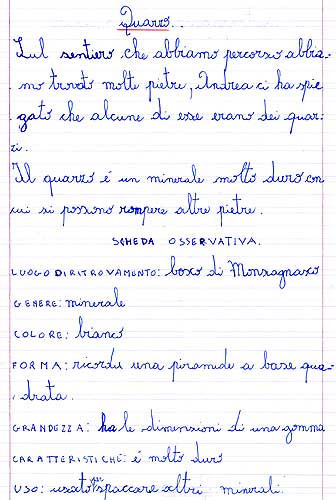 Quarzo..
Sul sentiero che abbiamo percorso abbia-
mo trovato molte pietre, Andrea ci ha spie
gato che alcune di esse erano dei quar-
zi.
Il quarzo é un minerale molto duro con
cui si possono rompere altre pietre.
SCHEDA OSSERVATIVA.
LUOGO DI RITROVAMENTO: bosco di Monsagnasco
GENERE: minerale
COLORE: bianco
FORMA: ricorda una piramide a base qua-
drata.
GRANDEZZA: ha le dimensioni di una gomma
CARATTERISTICHE: é molto duro
USO: usato per spaccare altri minerali.